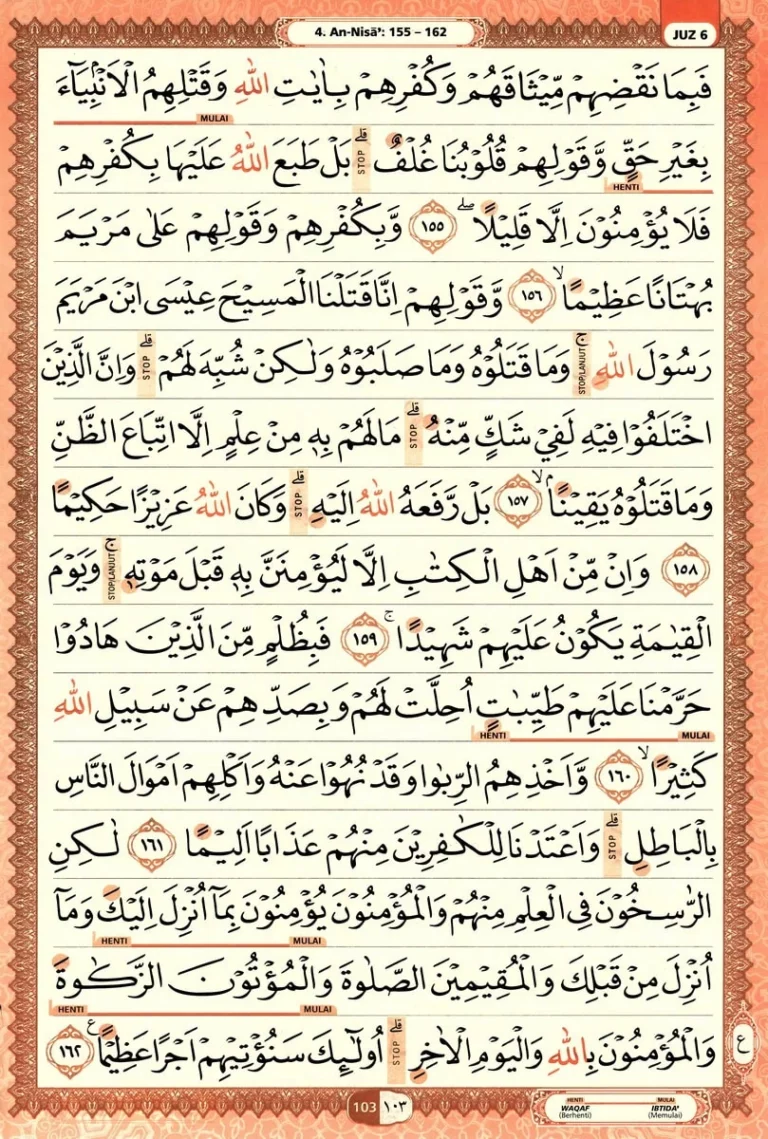 4. An-Nisā': 155 – 162
JUZ 6
فَبِمَا نَقْضِهِمْ مِّيْثَاقَهُمْ وَكُفْرِهِمْ بِاٰيٰتِ اللّٰهِ وَقَتْلِهِمُ الْاَنْۢبِيَاۤءَ
MULAI
بِغَيْرِ حَقٍّ وَّقَوْلِهِمْ قُلُوْبُنَا غُلْفٌ ۗ STOP بَلْ طَبَعَ اللّٰهُ عَلَيْهَا بِكُفْرِهِمْ
HENTI
فَلَا يُؤْمِنُوْنَ اِلَّا قَلِيْلًاۖ ١٥٥ وَّبِكُفْرِهِمْ وَقَوْلِهِمْ عَلٰى مَرْيَمَ
بُهْتَانًا عَظِيْمًاۙ ١٥٦ وَّقَوْلِهِمْ اِنَّا قَتَلْنَا الْمَسِيْحَ عِيْسَى ابْنَ مَرْيَمَ
رَسُوْلَ اللّٰهِ ۚ STOP/LANJUT وَمَا قَتَلُوْهُ وَمَا صَلَبُوْهُ وَلٰكِنْ شُبِّهَ لَهُمْ ۗ STOP وَاِنَّ الَّذِيْنَ
اخْتَلَفُوْا فِيْهِ لَفِيْ شَكٍّ مِّنْهُ ۗ STOP مَا لَهُمْ بِهٖ مِنْ عِلْمٍ اِلَّا اتِّبَاعَ الظَّنِّ
وَمَا قَتَلُوْهُ يَقِيْنًاۢ ۙ ١٥٧ بَلْ رَّفَعَهُ اللّٰهُ اِلَيْهِ ۗ STOP وَكَانَ اللّٰهُ عَزِيْزًا حَكِيْمًا
١٥٨ وَاِنْ مِّنْ اَهْلِ الْكِتٰبِ اِلَّا لَيُؤْمِنَنَّ بِهٖ قَبْلَ مَوْتِهٖ ۚ STOP/LANJUT وَيَوْمَ
الْقِيٰمَةِ يَكُوْنُ عَلَيْهِمْ شَهِيْدًاۚ ١٥٩ فَبِظُلْمٍ مِّنَ الَّذِيْنَ هَادُوْا
حَرَّمْنَا عَلَيْهِمْ طَيِّبٰتٍ اُحِلَّتْ لَهُمْ وَبِصَدِّهِمْ عَنْ سَبِيْلِ اللّٰهِ
HENTI MULAI
كَثِيْرًاۙ ١٦٠ وَّاَخْذِهِمُ الرِّبٰوا وَقَدْ نُهُوْا عَنْهُ وَاَكْلِهِمْ اَمْوَالَ النَّاسِ
بِالْبَاطِلِ ۗ STOP وَاَعْتَدْنَا لِلْكٰفِرِيْنَ مِنْهُمْ عَذَابًا اَلِيْمًا ١٦١ لٰكِنِ
الرّٰسِخُوْنَ فِى الْعِلْمِ مِنْهُمْ وَالْمُؤْمِنُوْنَ يُؤْمِنُوْنَ بِمَآ اُنْزِلَ اِلَيْكَ وَمَآ
HENTI MULAI
اُنْزِلَ مِنْ قَبْلِكَ وَالْمُقِيْمِيْنَ الصَّلٰوةَ وَالْمُؤْتُوْنَ الزَّكٰوةَ
HENTI MULAI
وَالْمُؤْمِنُوْنَ بِاللّٰهِ وَالْيَوْمِ الْاٰخِرِ ۗ STOP اُولٰۤىِٕكَ سَنُؤْتِيْهِمْ اَجْرًا عَظِيْمًا ࣖ ١٦٢
ع
103 ١٠٣
HENTI MULAI
WAQAF IBTIDA'
(Berhenti) (Memulai)